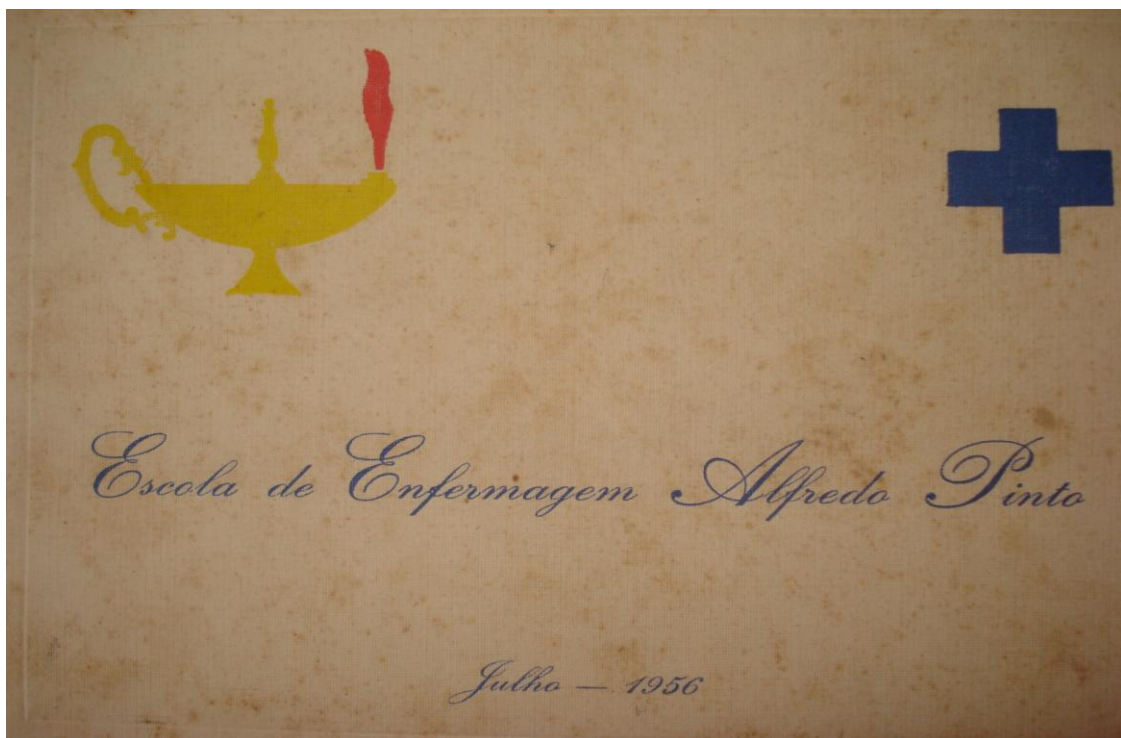 Escola de Enfermagem Alfredo Pinto
Julho — 1956